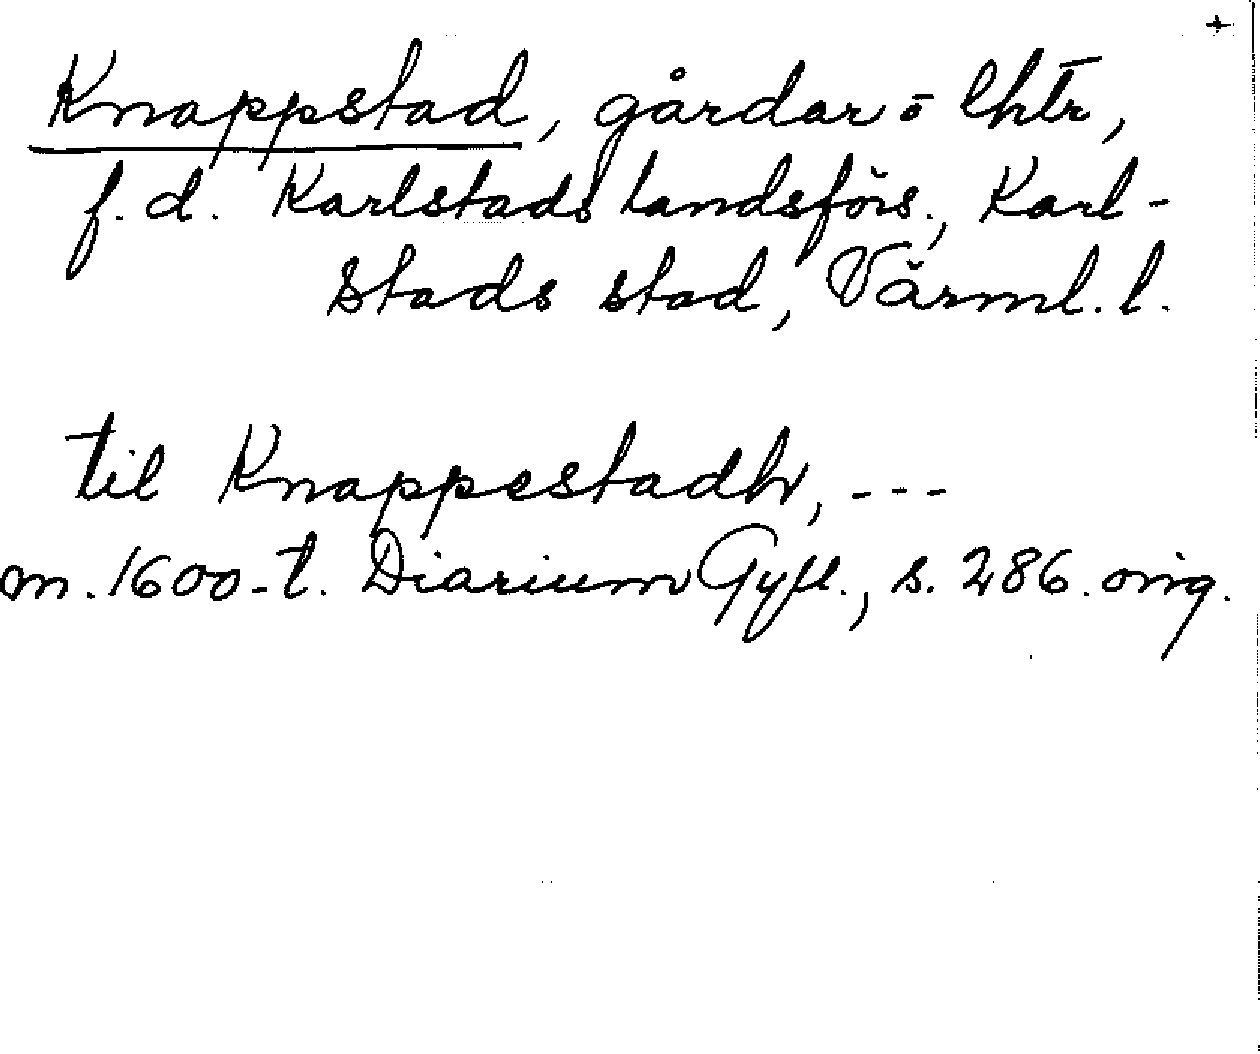 +
Knappstad, gårdar o lhtr,
f.d. Karlstads landsförs., Karl-
stads stad, Värml. l.
til Knappestadh, ---
m. 1600-t. Diarium Gyll., s. 286. orig.